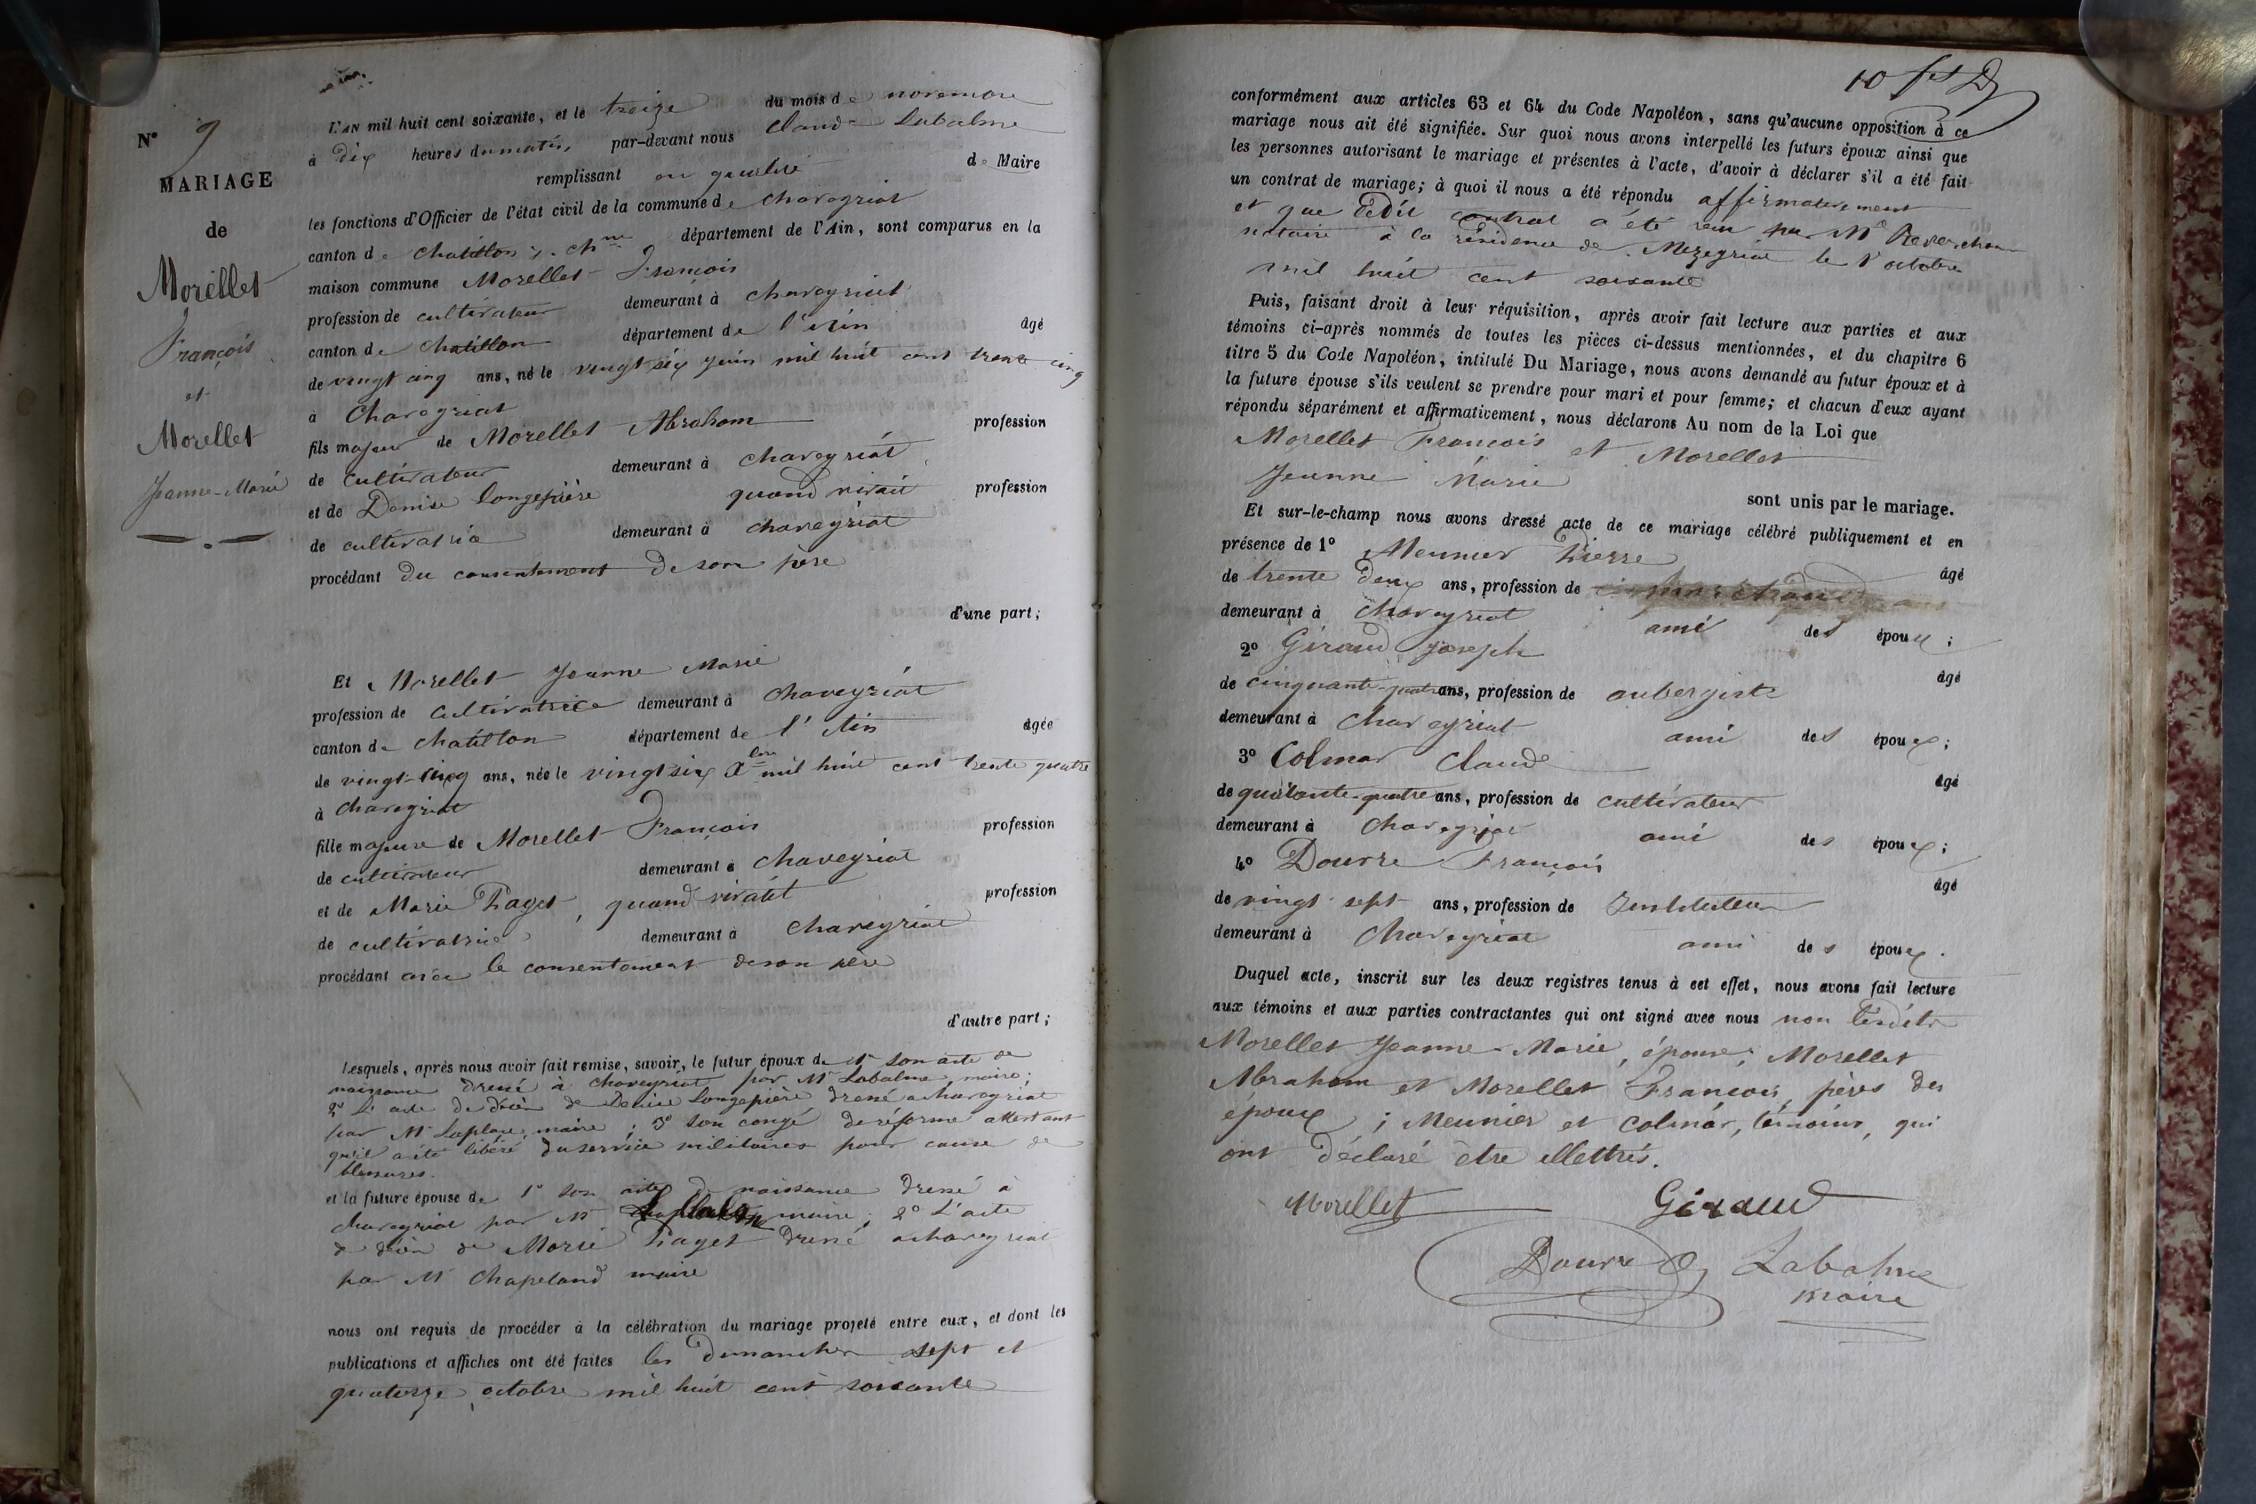 N° 9
MARIAGE
de
Morellet
François
et
Morellet
Jeanne-Marie
L'AN mil huit cent soixante, et le treize du mois de novembre
à dix heures du matin, par-devant nous Claude Labalme
remplissant en qualité de Maire
les fonctions d'Officier de l'état civil de la commune de Chaveyriat
canton de Chatillon s. Chne département de l'Ain, sont comparus en la
maison commune Morellet François
profession de cultivateur demeurant à Chaveyriat
canton de Chatillon département de l'Ain âgé
de vingt cinq ans, né le vingt six juin mil huit cent trente cinq
à Chaveyriat
fils majeur de Morellet Abraham profession
de cultivateur demeurant à Chaveyriat
et de Denise Longepière quand vivait profession
de cultivatrice demeurant à Chaveyriat
procédant du consentement de son père
d'une part;
Et Morellet Jeanne Marie
profession de cultivatrice demeurant à Chaveyriat
canton de Chatillon département de l'Ain âgée
de vingt-cinq ans, née le vingt six Xbre mil huit cent trente quatre
à Chaveyriat
fille majeure de Morellet François profession
de cultivateur demeurant à Chaveyriat
et de Marie Paget, quand vivait profession
de cultivatrice demeurant à Chaveyriat
procédant avec le consentement de son père
d'autre part;
Lesquels, après nous avoir fait remise, savoir, le futur époux de 1° son acte de
naissance dressé à Chaveyriat par Mr Labalme maire;
2° L'acte de décès de Denise Longepière dressé à Chaveyriat
par Mr Laplace, maire; 3° son congé de réforme attestant
qu'il a été libéré du service militaire pour cause de
blessures.
et la future épouse de 1° son acte de naissance dressé à
Chaveyriat par Mr maire; 2° L'acte
de décès de Marie Paget dressé à Chaveyriat
par Mr Chapeland maire
nous ont requis de procéder à la célébration du mariage projeté entre eux, et dont les
publications et affiches ont été faites les Dimanches sept et
quatorze octobre mil huit cent soixante
10 fs
conformément aux articles 63 et 64 du Code Napoléon, sans qu'aucune opposition à ce
mariage nous ait été signifiée. Sur quoi nous avons interpellé les futurs époux ainsi que
les personnes autorisant le mariage et présentes à l'acte, d'avoir à déclarer s'il a été fait
un contrat de mariage; à quoi il nous a été répondu affirmativement
et que Ledit contrat a été reçu par Me Reverchon
notaire à la résidence de Mezeyriat le 1er octobre
mil huit cent soixante
Puis, faisant droit à leur réquisition, après avoir fait lecture aux parties et aux
témoins ci-après nommés de toutes les pièces ci-dessus mentionnées, et du chapitre 6
titre 5 du Code Napoléon, intitulé Du Mariage, nous avons demandé au futur époux et à
la future épouse s'ils veulent se prendre pour mari et pour femme; et chacun d'eux ayant
répondu séparément et affirmativement, nous déclarons Au nom de la Loi que
Morellet François et Morellet
Jeanne Marie
sont unis par le mariage.
Et sur-le-champ nous avons dressé acte de ce mariage célébré publiquement et en
présence de 1° Meunier Pierre âgé
de trente deux ans, profession de marchand
demeurant à Chaveyriat ami des époux;
2° Giraud Joseph âgé
de cinquante-quatre ans, profession de aubergiste
demeurant à Chaveyriat ami des époux;
3° Colmar Claude âgé
de quarante-quatre ans, profession de cultivateur
demeurant à Chaveyriat ami des époux;
4° Dourre François âgé
de vingt sept ans, profession de Instituteur
demeurant à Chaveyriat ami des époux.
Duquel acte, inscrit sur les deux registres tenus à cet effet, nous avons fait lecture
aux témoins et aux parties contractantes qui ont signé avec nous non Lesdits
Morellet Jeanne-Marie, épouse; Morellet
Abraham et Morellet François, pères des
époux; Meunier et Colmar, témoins, qui
ont déclaré être illettrés.
Morellet Giraud
Dourre Labalme
maire